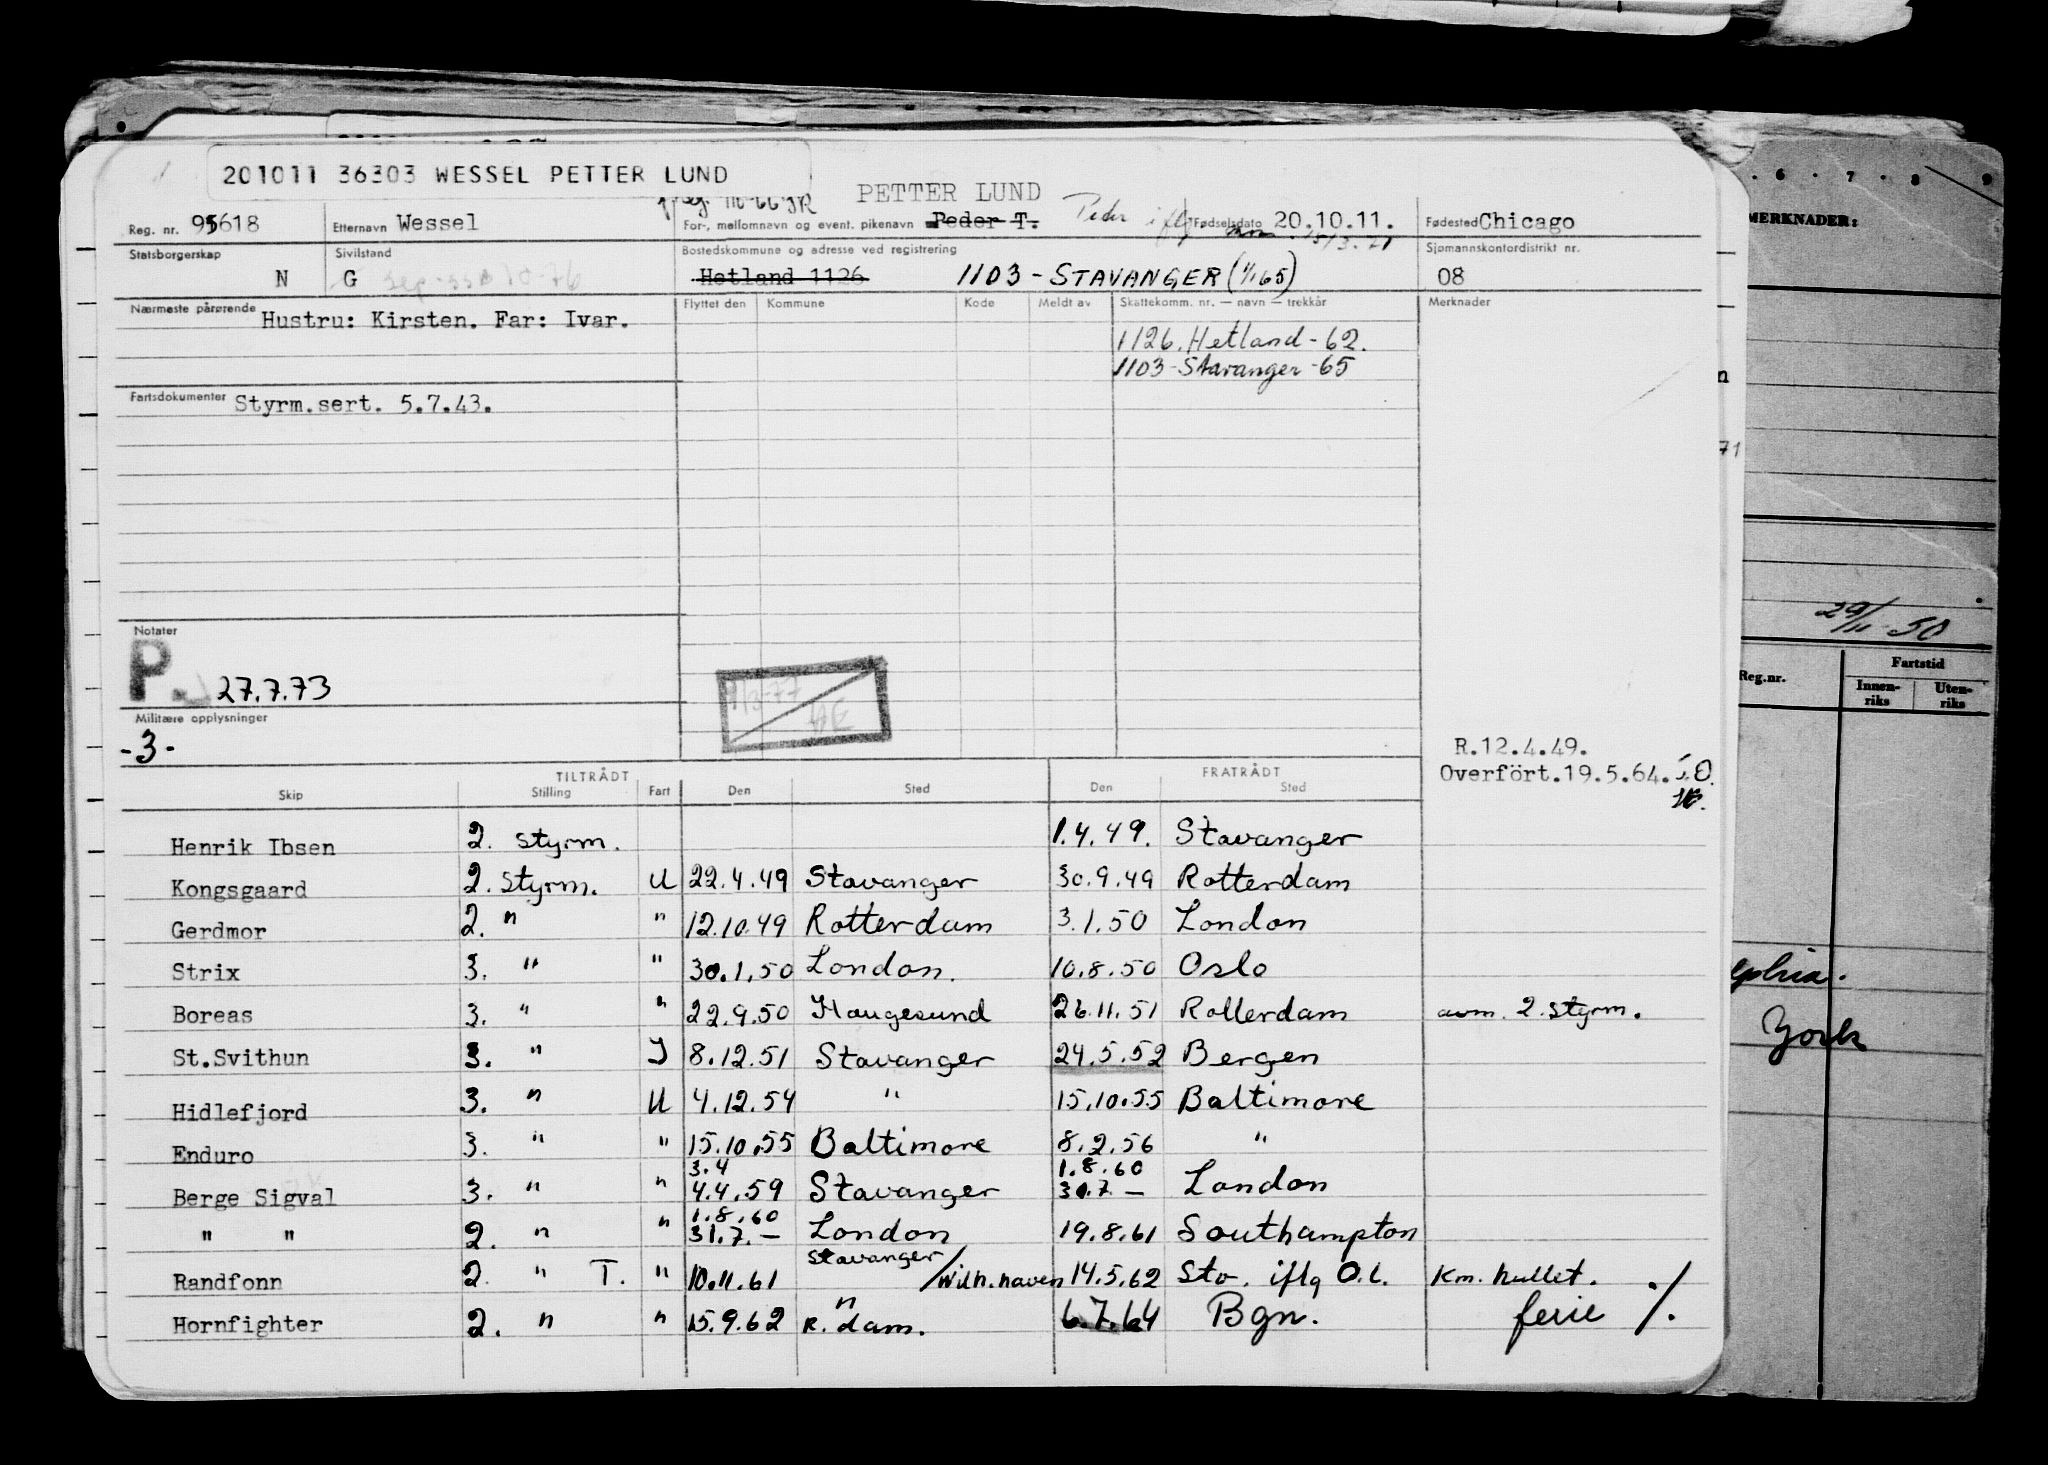 201011 36303 WESSEL PETTER LUND
PETTER LUND
Reg. nr. 95618 Etternavn Wessel For-, mellomnavn og event. pikenavn Peder T. Peder iflg. Fødselsdato 20.10.11. Fødested Chicago
Statsborgerskap N Sivilstand G Bostedskommune og adresse ved registrering Hetland 1126 1103 - STAVANGER (1/1 65) Sjømannskontordistrikt nr. 08
Nærmeste pårørende Hustru: Kirsten. Far: Ivar.
Flyttet den Kommune Kode Meldt av Skattekomm. nr. — navn — trekkår Merknader
1126. Hetland - 62.
1103 - Stavanger - 65
Fartsdokumenter Styrm.sert. 5.7.43.
Notater
P. 27.7.73
Militære opplysninger
-3-
R.12.4.49.
Overfört.19.5.64.
TILTRÅDT FRATRÅDT
Skip Stilling Fart Den Sted Den Sted
Henrik Ibsen 2. styrm. 1.4.49. Stavanger
Kongsgaard 2. styrm. U 22.4.49 Stavanger 30.9.49 Rotterdam
Gerdmor 2. " " 12.10.49 Rotterdam 3.1.50 London
Strix 3. " " 30.1.50 London. 10.8.50 Oslo
Boreas 3. " " 22.9.50 Haugesund 26.11.51 Rotterdam avm. 2. styrm.
St.Svithun 3. " I 8.12.51 Stavanger 24.5.52 Bergen
Hidlefjord 3. " U 4.12.54 " 15.10.55 Baltimore
Enduro 3. " " 15.10.55 Baltimore 8.2.56 "
3.4 1.8.60
Berge Sigval 3. " " 4.4.59 Stavanger 30.7.— London
1.8.60
" " 2. " " 31.7.— London 19.8.61 Southampton
Randfonn 2. " T. " 10.11.61 Stavanger/Wilh.haven 14.5.62 Stv. iflg O.l. Km. hullet. ./.
Hornfighter 2. " " 15.9.62 R."dam. 6.7.64 Bgn. ferie ./.
6 7 8 9
MERKNADER:
71
29/11-50
Reg.nr. Fartstid
Innen-
riks Uten-
riks
elphia.
York